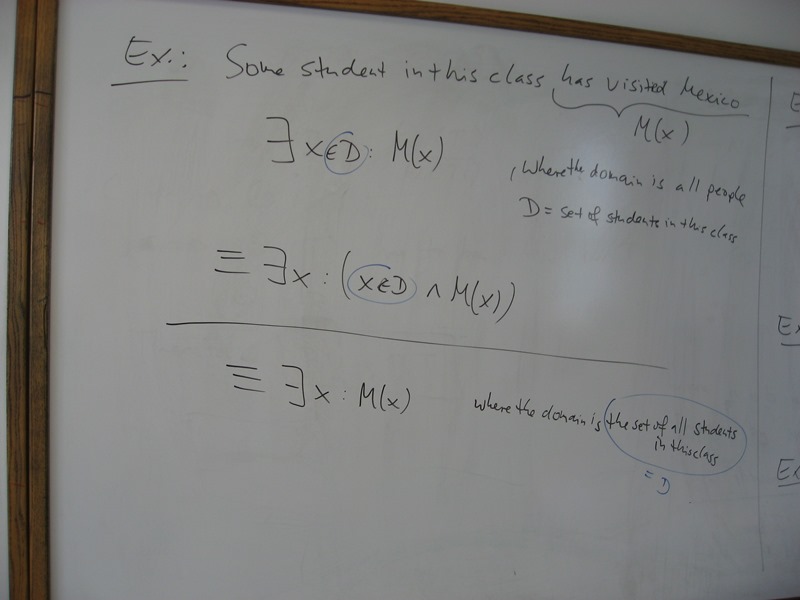 Ex.: Some student in this class has visited Mexico
M(x)
∃x∈D: M(x)
, where the domain is all people
D = set of students in this class
≡ ∃x: (x∈D ∧ M(x))
≡ ∃x: M(x)
where the domain is the set of all students
in this class
= D
E
Ex
Ex